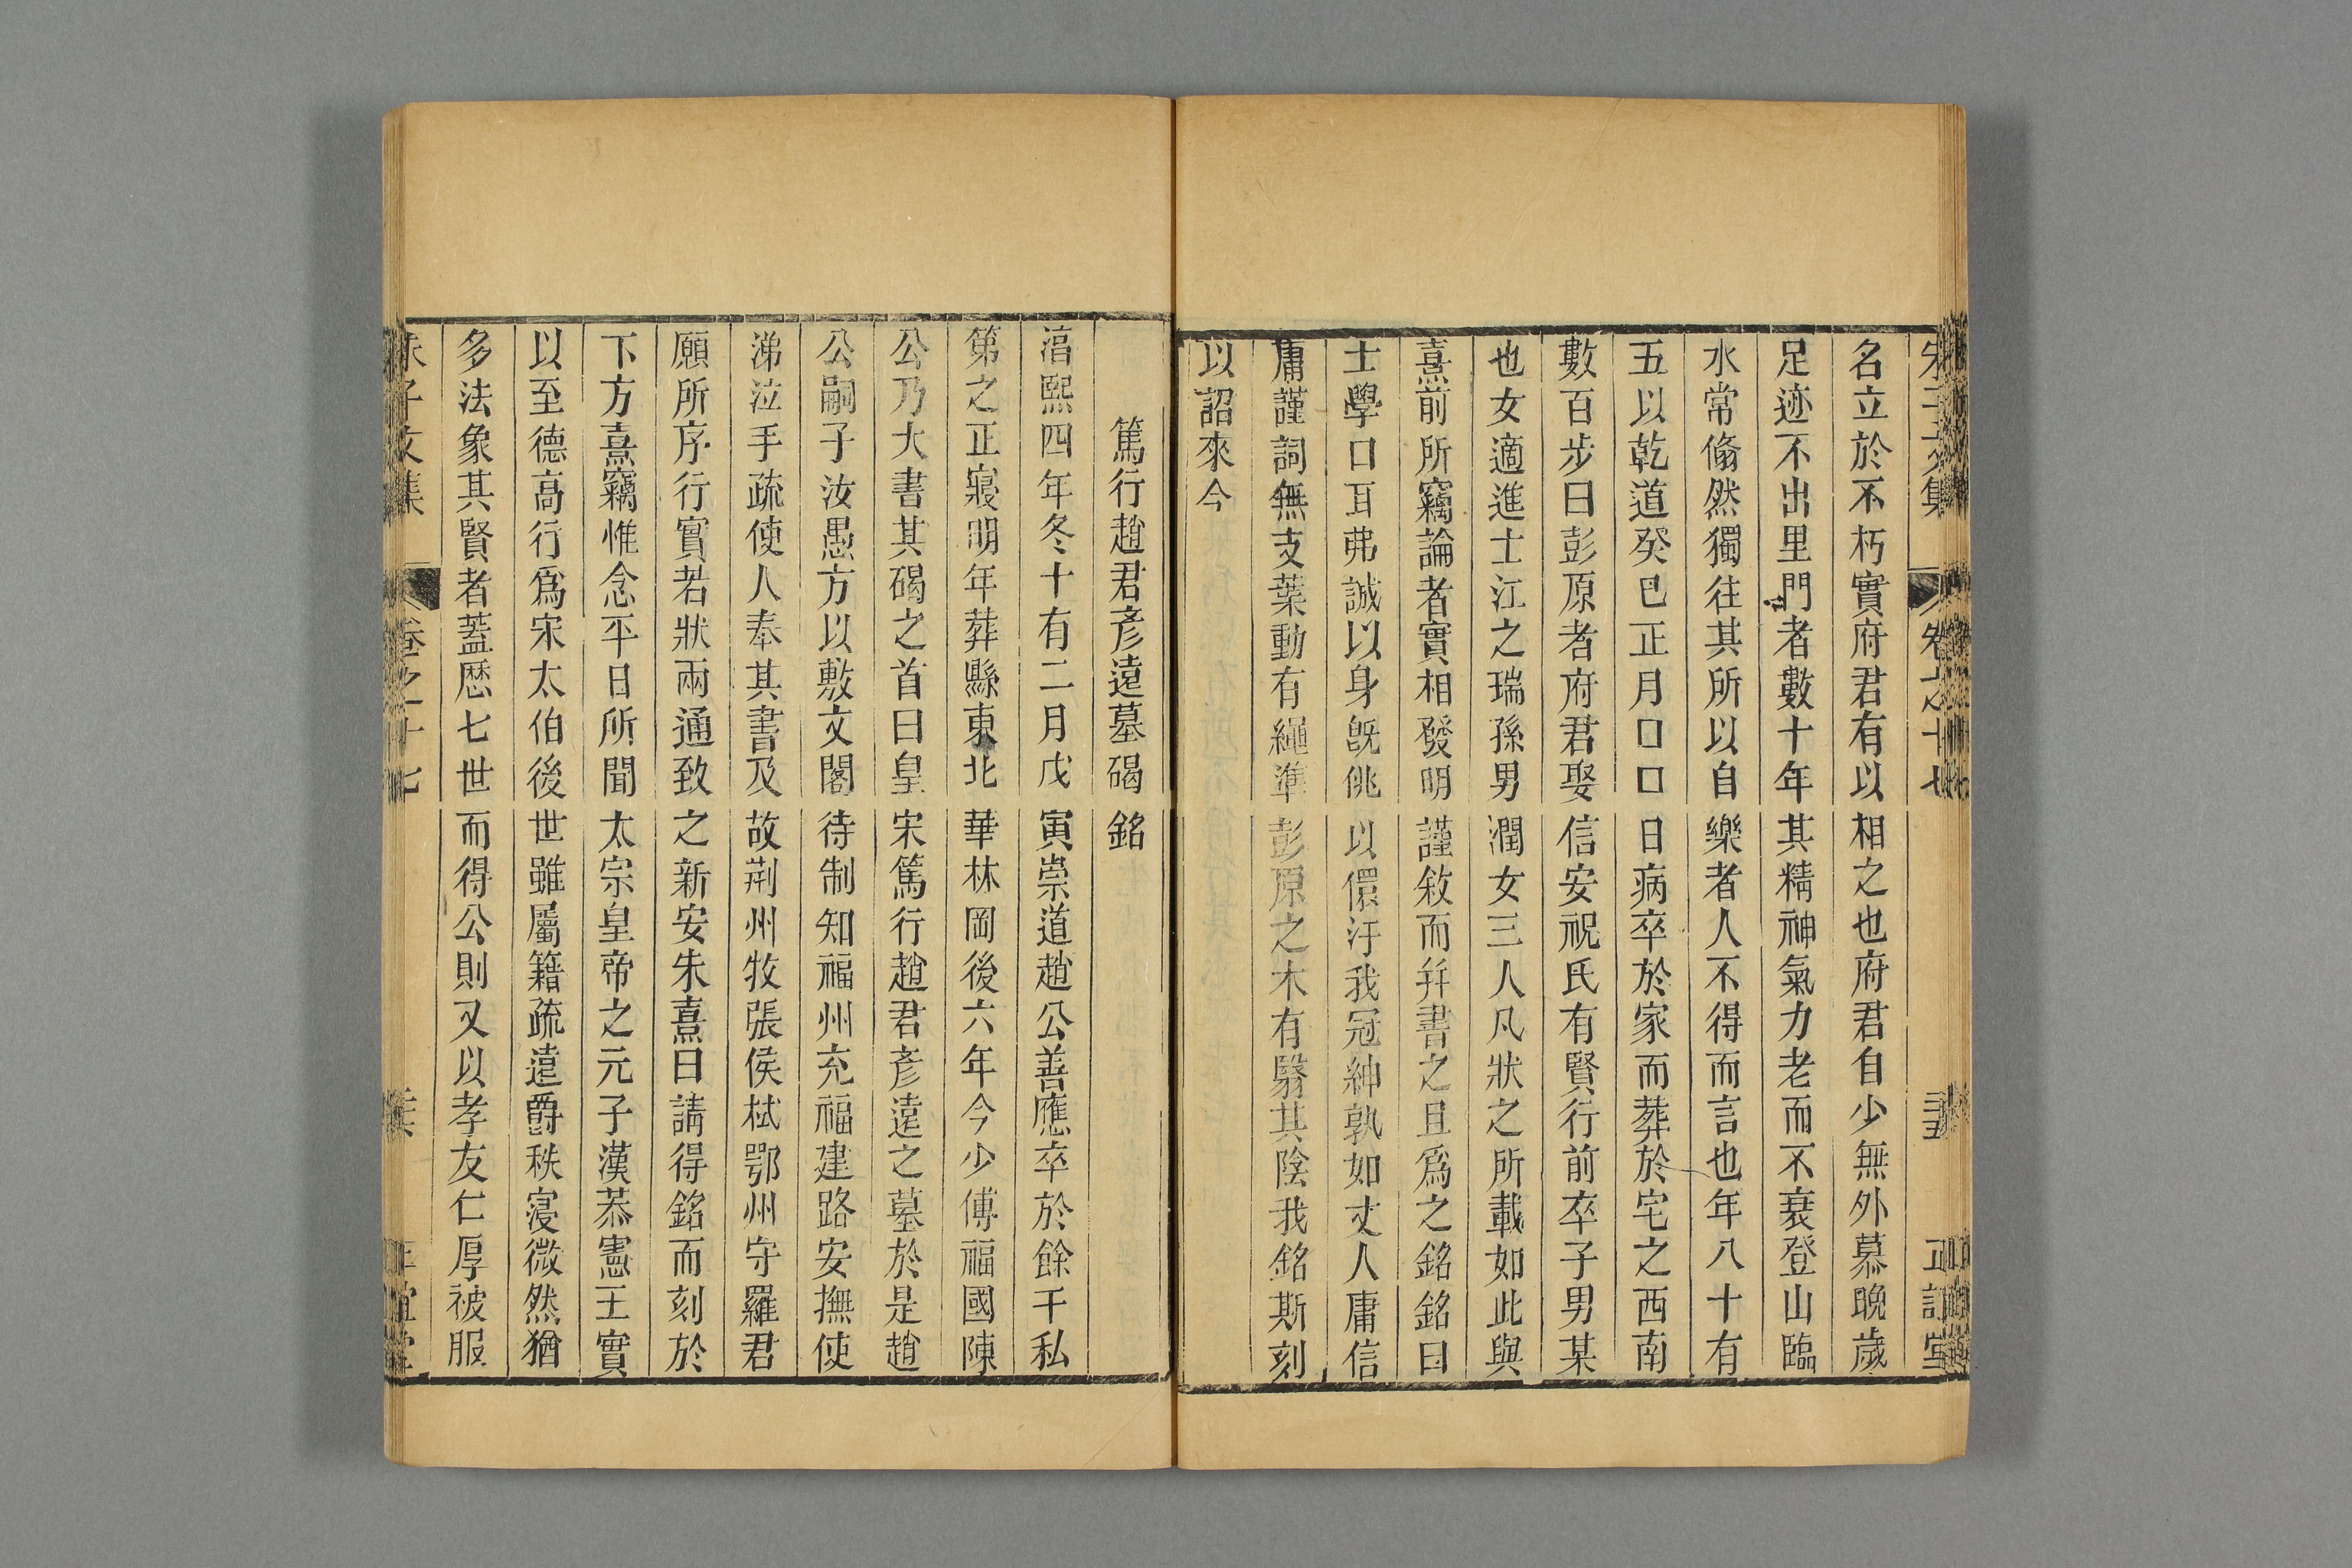 名立於不朽實府君有以相之也府君自少無外慕晚歲
足迹不出里門者數十年其精神氣力老而不衰登山臨
水常翛然獨往其所以自樂者人不得而言也年八十有
五以乾道癸巳正月口口日病卒於家而葬於宅之西南
數百步曰彭原者府君娶信安祝氏有賢行前卒子男某
也女適進士江之瑞孫男潤女三人凡狀之所載如此與
熹前所竊論者實相發明謹敘而并書之且爲之銘銘曰
士學口耳弗誠以身旣佻以儇汙我冠紳孰如丈人庸信
庸謹詞無支葉動有繩準彭原之木有翳其陰我銘斯刻
以詔來今
篤行趙君彥遠墓碣銘
淳熙四年冬十有二月戊寅崇道趙公善應卒於餘干私
第之正寢明年葬縣東北華林岡後六年今少傅福國陳
公乃大書其碣之首曰皇宋篤行趙君彥遠之墓於是趙
公嗣子汝愚方以敷文閣待制知福州充福建路安撫使
涕泣手疏使人奉其書及故荆州牧張侯栻鄂州守羅君
願所序行實若狀兩通致之新安朱熹曰請得銘而刻於
下方熹竊惟念平日所聞太宗皇帝之元子漢恭憲王實
以至德高行爲宋太伯後世雖屬籍疏遠爵秩寖微然猶
多法象其賢者蓋歷七世而得公則又以孝友仁厚被服
朱子文集 卷之十七